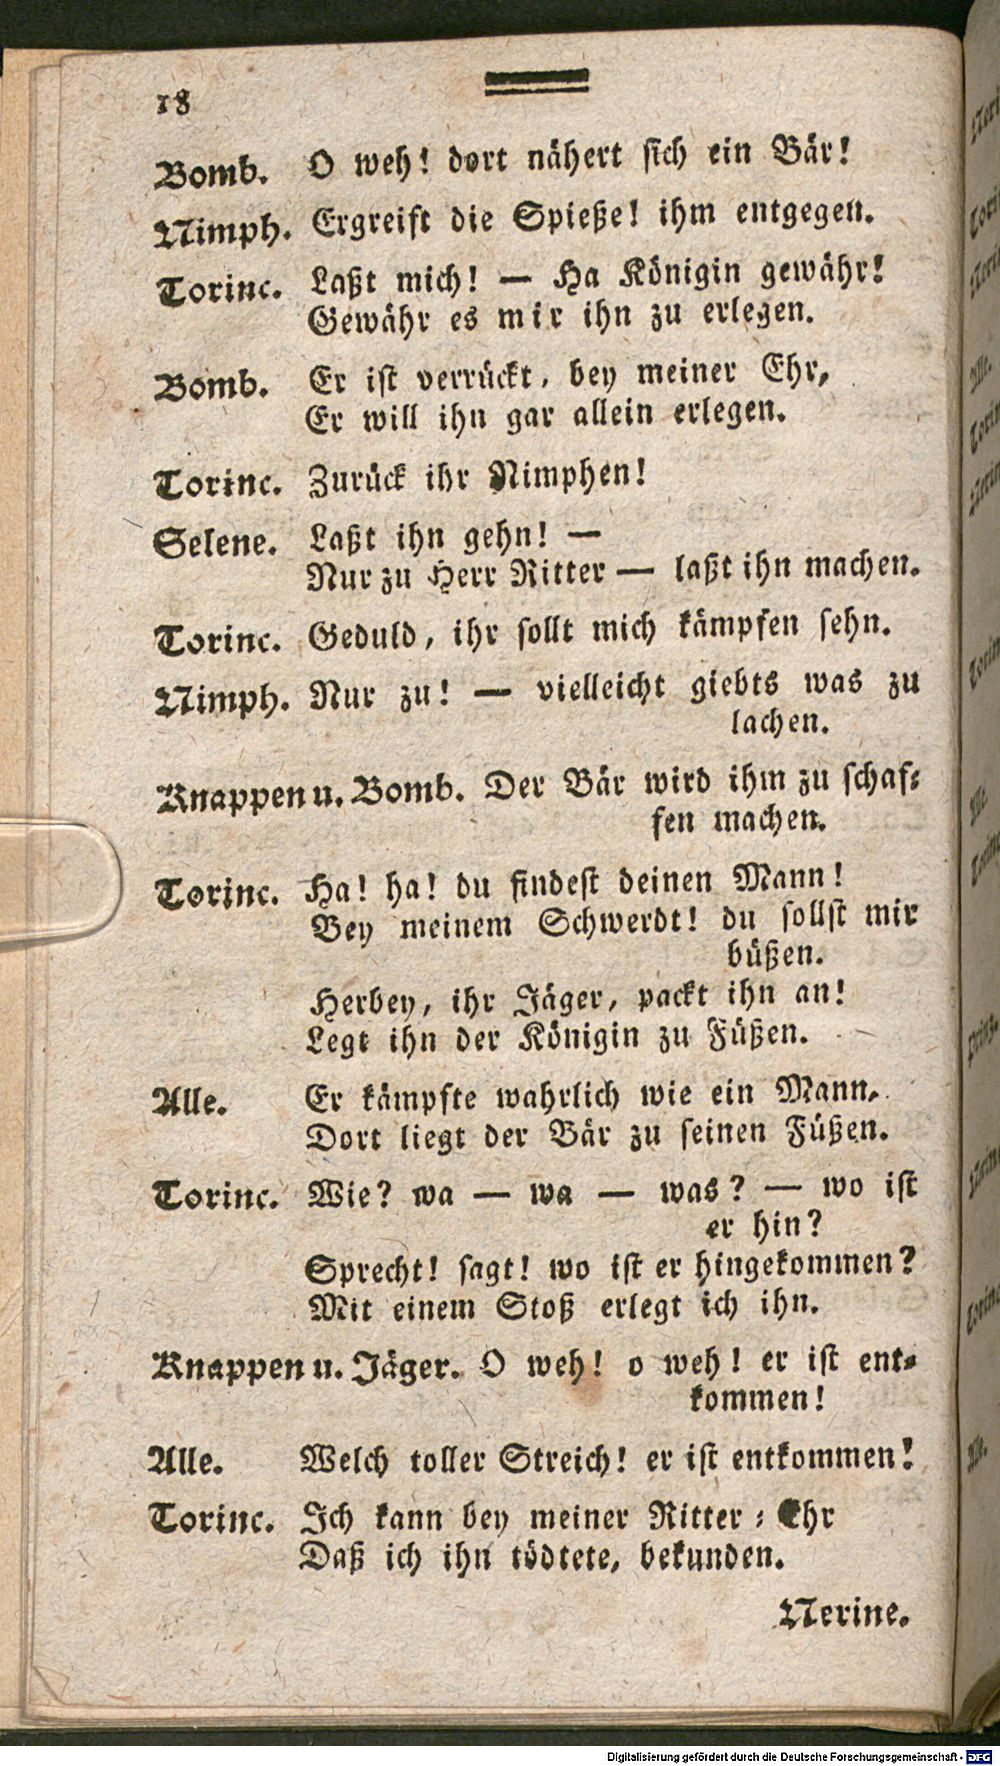 18
Bomb. O weh! dort nähert sich ein Bär!
Nimph. Ergreift die Spieße! ihm entgegen.
Torinc. Laßt mich! — Ha Königin gewähr!
Gewähr es mir ihn zu erlegen.
Bomb. Er ist verrückt, bey meiner Ehr,
Er will ihn gar allein erlegen.
Torinc. Zurück ihr Nimphen!
Selene. Laßt ihn gehn! —
Nur zu Herr Ritter — laßt ihn machen.
Torinc. Geduld, ihr sollt mich kämpfen sehn.
Nimph. Nur zu! — vielleicht giebts was zu
lachen.
Knappen u. Bomb. Der Bär wird ihm zu schaf-
fen machen.
Torinc. Ha! ha! du findest deinen Mann!
Bey meinem Schwerdt! du sollst mir
büßen.
Herbey, ihr Jäger, packt ihn an!
Legt ihn der Königin zu Füßen.
Alle. Er kämpfte wahrlich wie ein Mann,
Dort liegt der Bär zu seinen Füßen.
Torinc. Wie? wa — wa — was? — wo ist
er hin?
Sprecht! sagt! wo ist er hingekommen?
Mit einem Stoß erlegt ich ihn.
Knappen u. Jäger. O weh! o weh! er ist ent-
kommen!
Alle. Welch toller Streich! er ist entkommen!
Torinc. Ich kann bey meiner Ritter-Ehr
Daß ich ihn tödtete, bekunden.
Nerine.
Digitalisierung gefördert durch die Deutsche Forschungsgemeinschaft - DFG